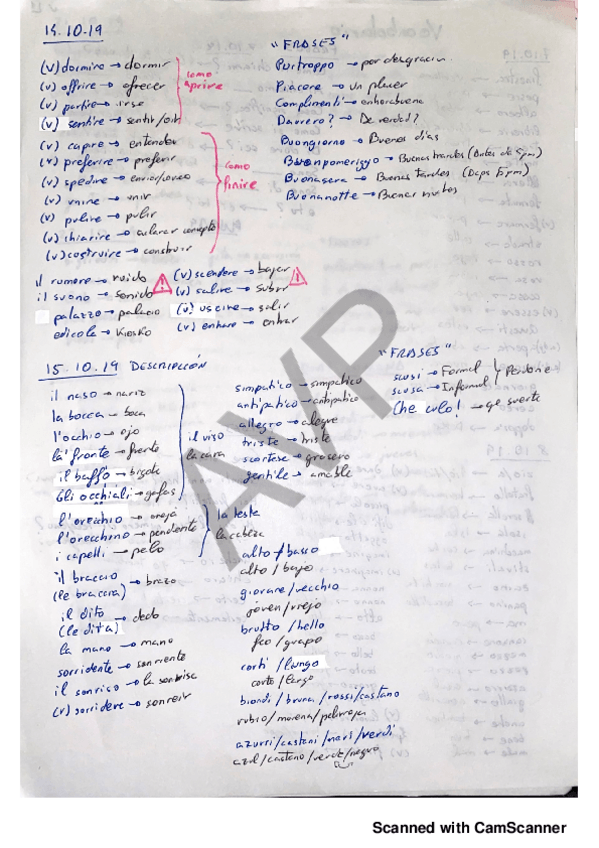 14.10.19
(v) dormire → dormir
(v) offrire → ofrecer
(v) partire → irse
(v) sentire → sentir/oir
como aprire
(v) capire → entender
(v) preferire → preferir
(v) spedire → enviar/
(v) unire → unir
(v) pulire → pulir
(v) chiarire → aclarar
(v) costruire → construir
como finire
il rumore → ruido
il suono → sonido
palazzo → palacio
edicola → kiosko
(v) scendere → bajar
(v) salire → subir
(v) uscire → salir
(v) entrare → entrar
"FRASES"
Purtroppo → por desgracia
Piacere → un placer
Complimenti → enhorabuena
Davvero? → De verdad?
Buongiorno → Buenos dias
Buonpomeriggio → Buenas tardes (Antes de 5pm)
Buonasera → Buenas tardes (Dsps 5pm)
Buonanotte → Buenas noches
15.10.19 DESCRIPCIÓN
il naso → nariz
la bocca → boca
l'occhio → ojo
la fronte → frente
il baffo → bigote
Gli occhiali → gafas
il viso
la cara
l'orecchio → oreja
l'orecchino → pendiente
i capelli → pelo
la testa
la cabeza
il braccio
(le braccia) → brazo
il dito
(le dita) → dedo
la mano → mano
sorridente → sonriente
il sorriso → la sonrisa
(v) sorridere → sonreir
simpatico → simpatico
antipatico → antipatico
allegro → alegre
triste → triste
scortese → grosero
gentile → amable
alto / basso
alto / bajo
giovane / vecchio
joven / viejo
brutto / bello
feo / guapo
corti / lungo
corto / largo
biondi / bruna / rossi / castano
rubio / morena / pelirroja
azzurri / castani / neri / verdi
azul / castano / verde / negro
"FRASES"
scusi → Formal
scusa → Informal
Perdone
Che culo! → qe suerte
AVP
Scanned with CamScanner